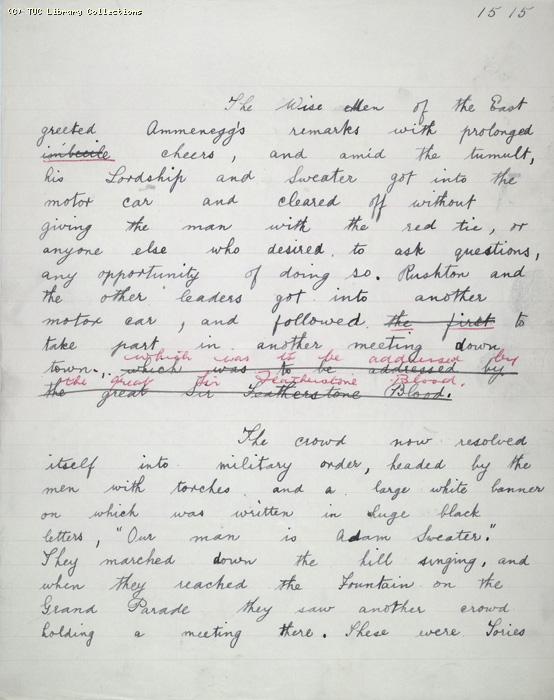 (C) TUC Library Collections
15 15
The Wise Men of the East
greeted Ammenegg's remarks with prolonged
imbecile cheers, and amid the tumult,
his Lordship and Sweater got into the
motor car and cleared off without
giving the man with the red tie, or
anyone else who desired to ask questions,
any opportunity of doing so. Rushton and
the other leaders got into another
motor car, and followed the first to
take part in another meeting down
which was to be addressed by
town., which was to be addressed by
the great Sir Featherstone Blood.
the great Sir Featherstone Blood.
The crowd now resolved
itself into military order, headed by the
men with torches and a large white banner
on which was written in huge black
letters, "Our man is Adam Sweater."
They marched down the hill singing, and
when they reached the Fountain on the
Grand Parade they saw another crowd
holding a meeting there. These were Tories